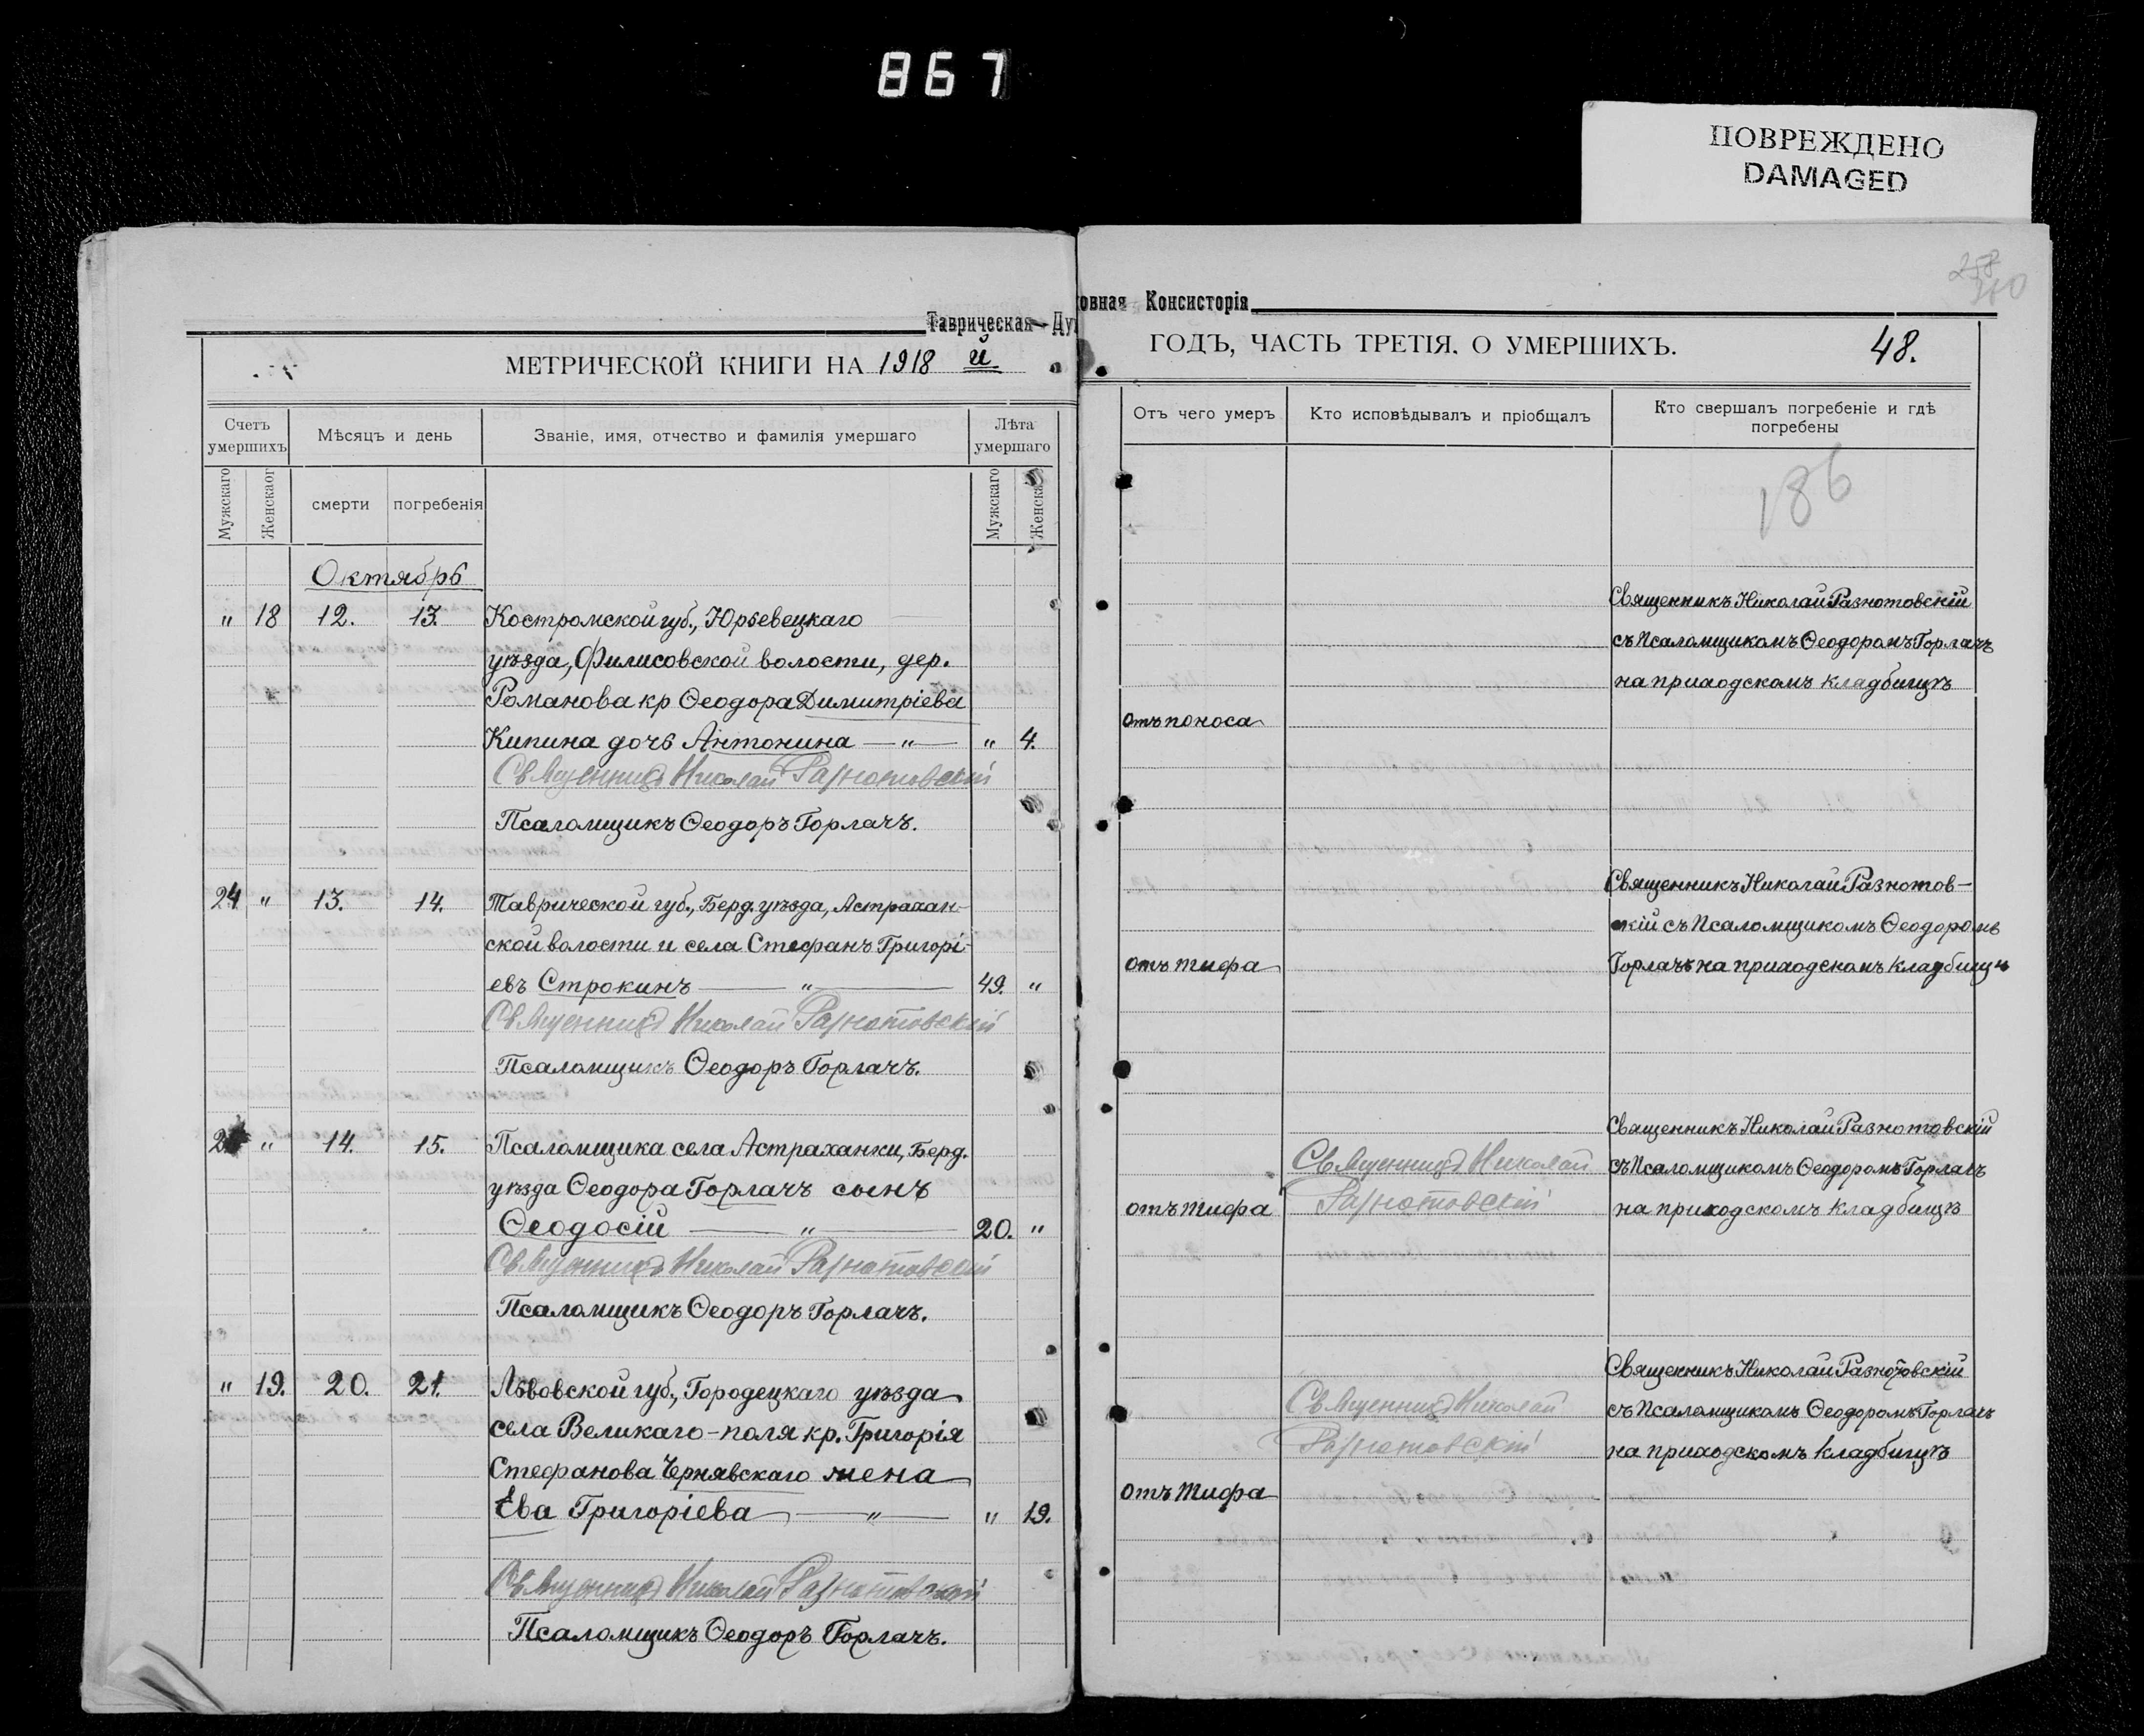 867
ПОВРЕЖДЕНО
DAMAGED
Таврическая Духовная Консисторія
МЕТРИЧЕСКОЙ КНИГИ НА 1918 й
ГОДЪ, ЧАСТЬ ТРЕТІЯ. О УМЕРШИХЪ.
48.
Счетъ умершихъ
Мѣсяцъ и день
Званіе, имя, отчество и фамилія умершаго
Лѣта умершаго
Мужскаго
Женскаог
смерти
погребенія
Мужскаго
Женска
Отъ чего умеръ
Кто исповѣдывалъ и пріобщалъ
Кто свершалъ погребеніе и гдѣ
погребены
186
Октябрь
" 18 12. 13. Костромской губ., Юрьевецкаго
уѣзда, Филисовской волости, дер.
Романова кр Ѳеодора Димитріева
Кипина дочь Антонина — " — " 4.
Священникъ Николай Разнотовскій
Псаломщикъ Ѳеодоръ Горлачъ.
отъ поноса
Священникъ Николай Разнотовскій
съ Псаломщикомъ Ѳеодоромъ Горлачъ
на приходскомъ кладбищѣ
24 " 13. 14. Таврической губ., Берд. уѣзда, Астрахан-
ской волости и села Стефанъ Григорі-
евъ Строкинъ — " — 49. "
Священникъ Николай Разнотовскій
Псаломщикъ Ѳеодоръ Горлачъ.
отъ тифа
Священникъ Николай Разнотов-
скій съ Псаломщикомъ Ѳеодоромъ
Горлачъ на приходскомъ кладбищѣ
" 14. 15. Псаломщика села Астраханки, Берд.
уѣзда Ѳеодора Горлачъ сынъ
Ѳеодосій — " — 20. "
Священникъ Николай Разнотовскій
Псаломщикъ Ѳеодоръ Горлачъ.
отъ тифа
Священникъ Николай
Разнотовскій
Священникъ Николай Разнотовскій
съ Псаломщикомъ Ѳеодоромъ Горлачъ
на приходскомъ кладбищѣ
" 19. 20. 21. Львовской губ., Городецкаго уѣзда
села Великаго-поля кр. Григорія
Стефанова Чернявскаго жена
Ева Григоріева — " — " 19.
Священникъ Николай Разнотовскій
Псаломщикъ Ѳеодоръ Горлачъ.
отъ тифа
Священникъ Николай
Разнотовскій
Священникъ Николай Разнотовскій
съ Псаломщикомъ Ѳеодоромъ Горлачъ
на приходскомъ кладбищѣ